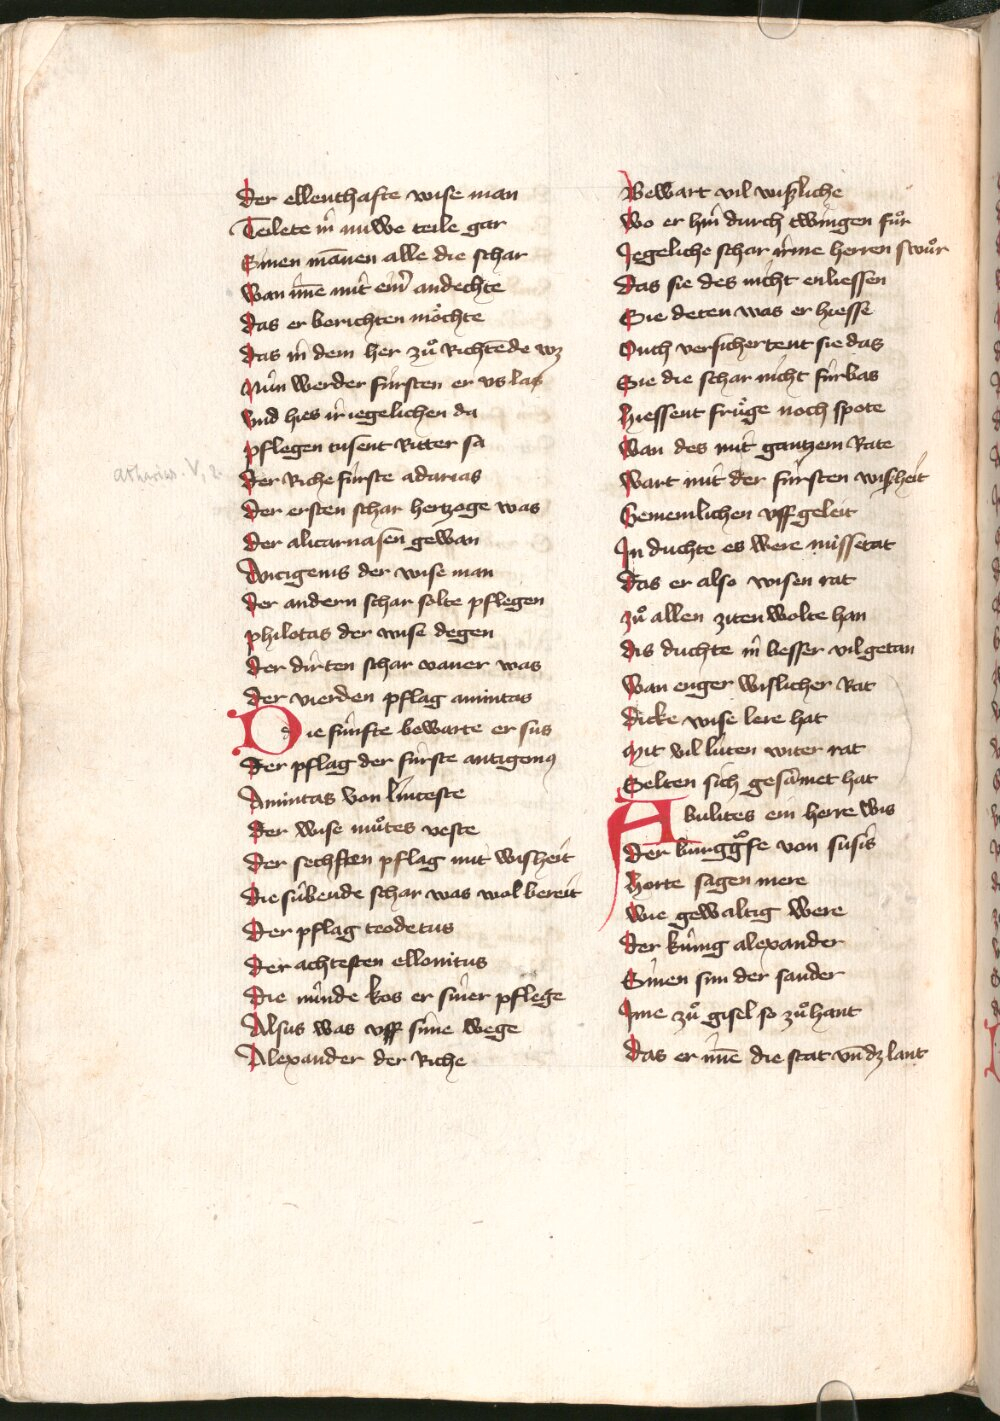 Der ellenthafte wise man
Teilete in nuwe teile gar
Sinen mannen alle die schar
Wan ime mit eim andechte
Das er berichten möchte
Das in dem her zuͦ Richtende wz
Nún werder fúrsten er vs las
Vnd hies ir iegelichen da
pflegen tusent Ritter sa
Der Riche fúrste adarias
Der ersten schar hertzoge was
Der alicarnasen gewan
Anti­genis der wise man
Der andern schar solte pflegen
philotas der wise degen
Der dirten schar vaner was
Der vierden pflag amintas
Die fúnfte bewarte er sus
Der pflag der fúrste antigonus
Amintas von linceste
Der wise muͦtes veste
Der sechsten pflag mit wisheit
Die sibende schar was wol bereit
Der pflag teodetus
Der achtesten ellonitus
Die núnde kos er siner pflege
Alsus was vff sime wege
Alexander der Riche
atharias V, 2.
Bewart vil wisliche
Wo er hin durch twingen fuͦr
Jegeliche schar irme herren swuͦr
Das sie des nicht enliessen
Sie deten was er hiesse
Ouch versichertent sie das
Sie die schar nicht fúrbas
hiessent fruͤge noch spote
Wan des mit gantzem Rate
Wart mit der fúrsten wisheit
Gemeinlichen vff geleit
In duchte es were missetat
Das er also wisen rat
zuͦ allen ziten wolte han
Dis duchte in besser vil getan
Wan enger wislicher Rat
Dicke wise lere hat
Mit vil lúten witer rat
Selten sich gesamet hat
Abulites ein herre wis
Der burggͦfe von susis
horte sagen mere
Wie gewaltig were
Der kúnig alexander
Sinen sun der sander
Ime zuͦ gisel so zuͦ hant
Das er ime die stat vnd dz lant